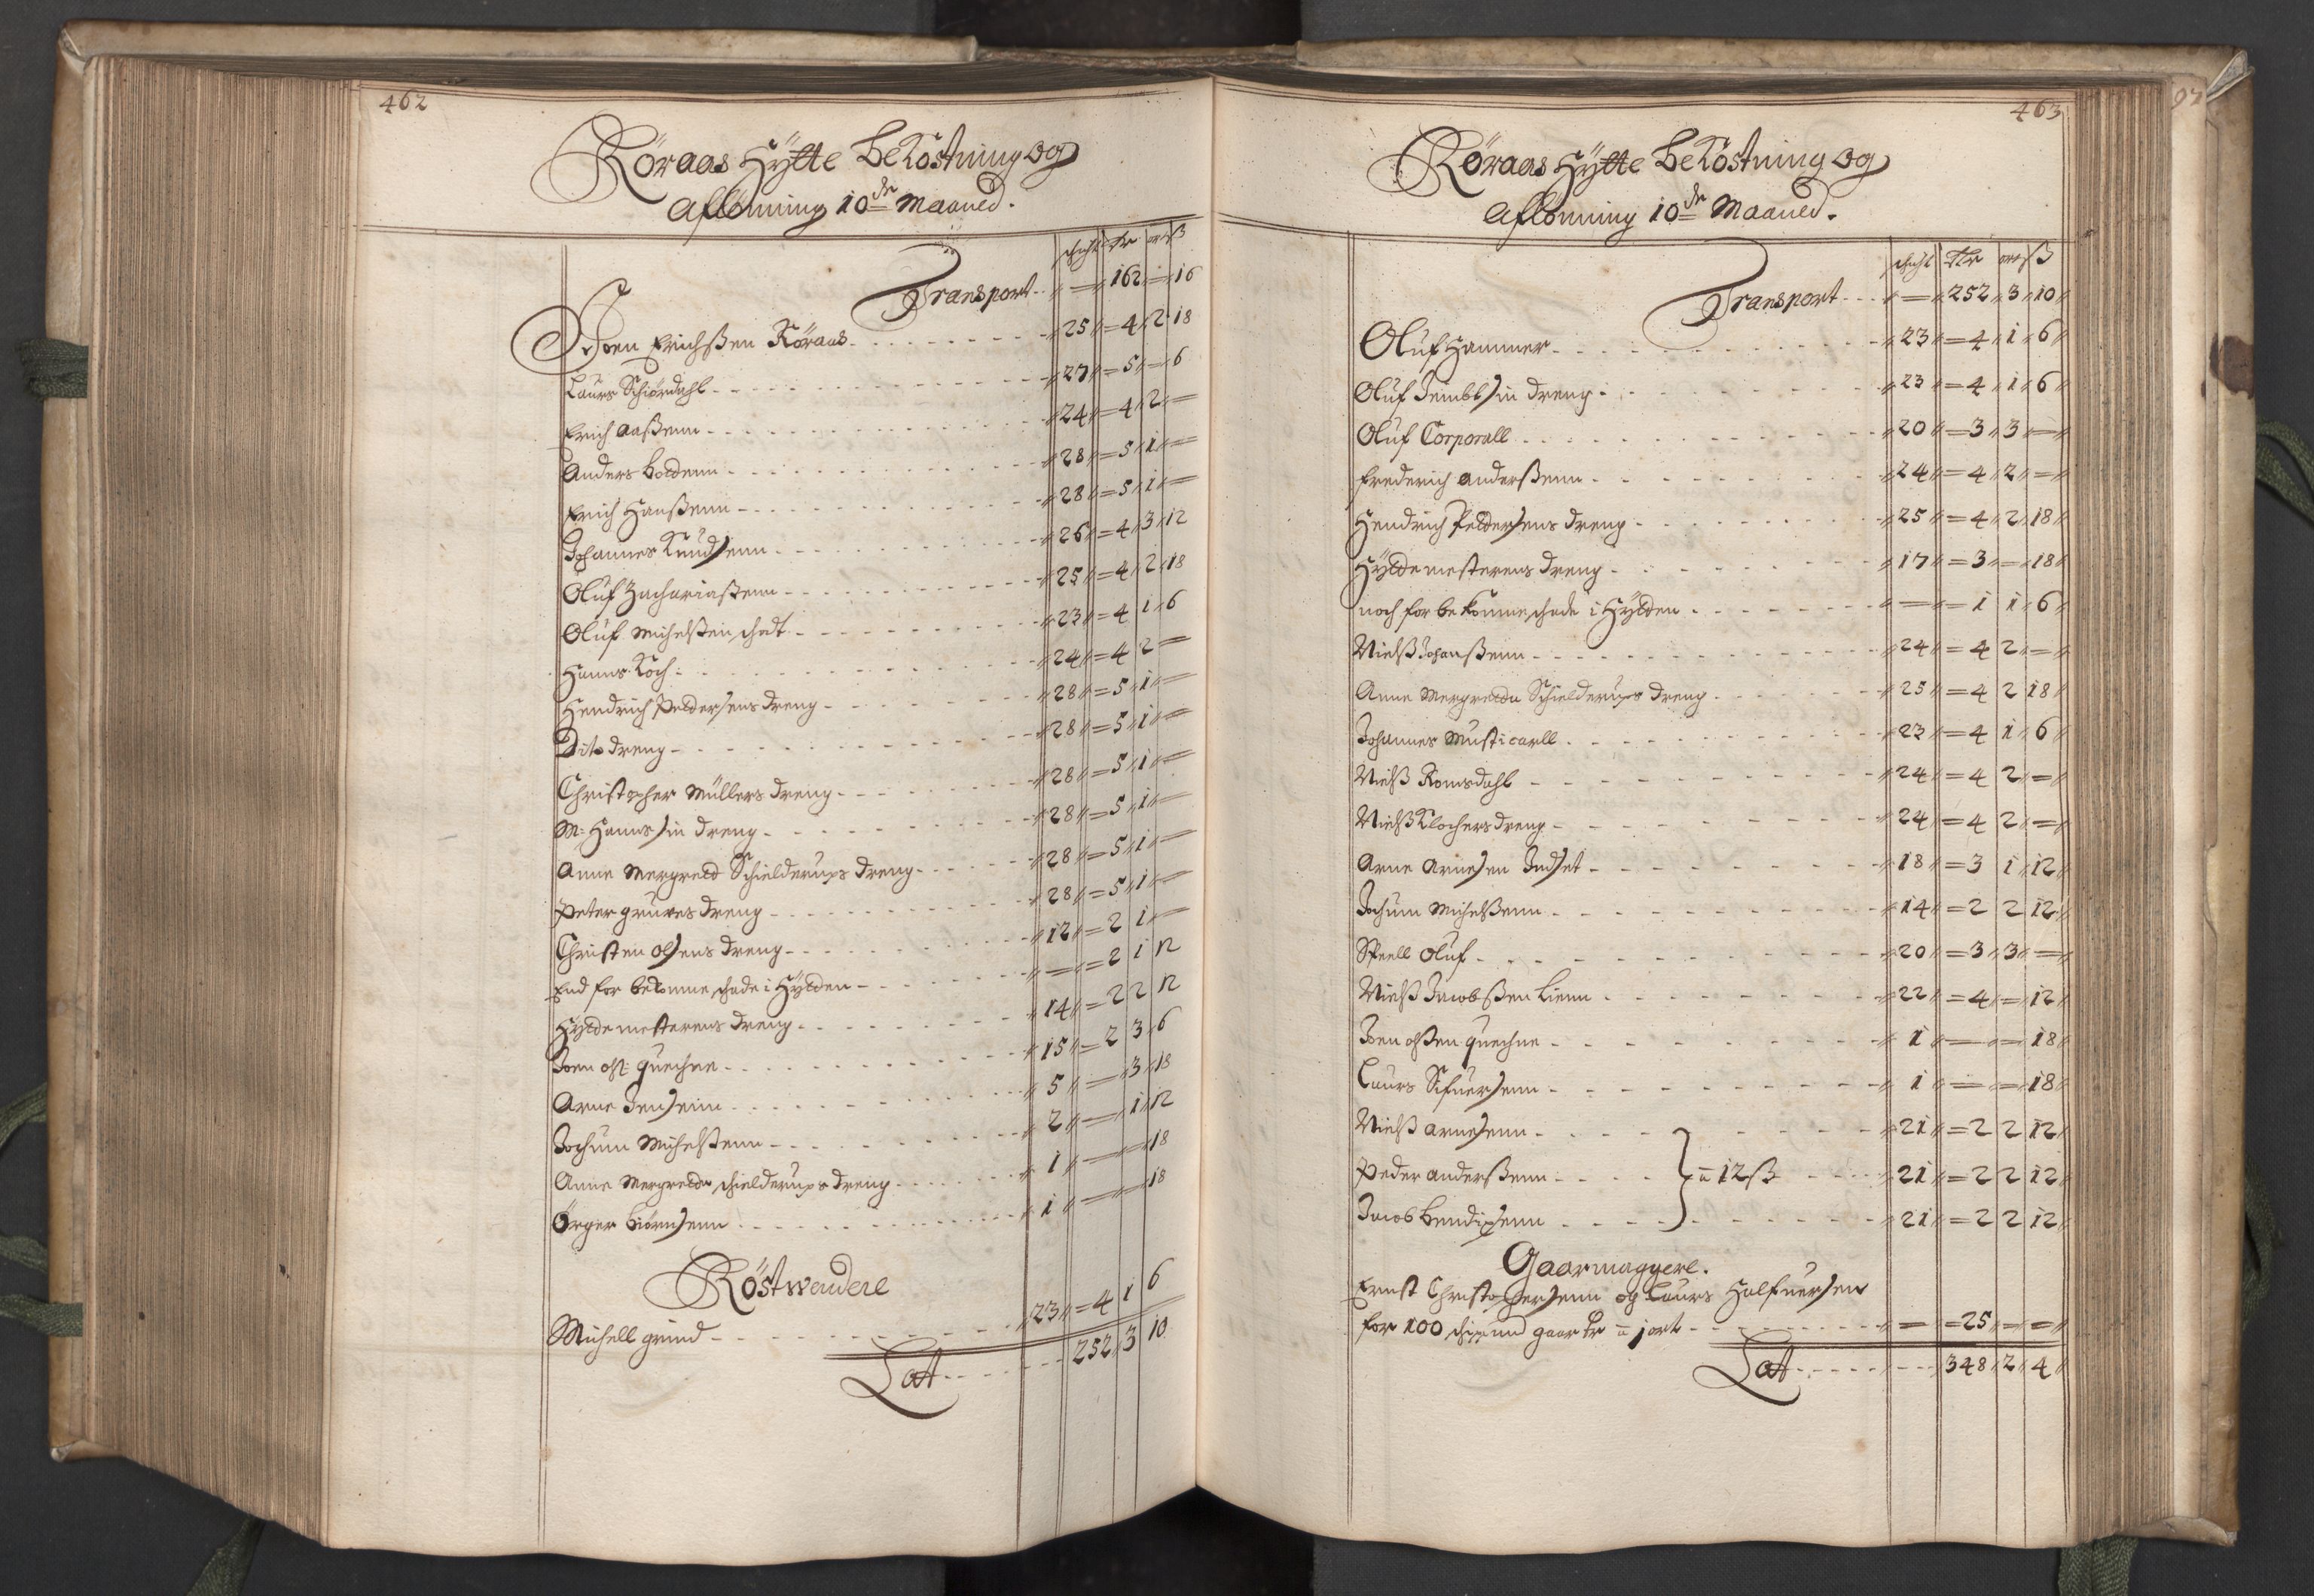 462
Röraas Hytte Bekostning og
Aflönning 10de Maaned.
schicht Dr ort ß
Transport - - " — " 162 = 16
Joen Erichßen Röraas - - - " 25 " = 4 " 2 " 18
Laurs Schiördahl - - - " 27 " = 5 " — " 6
Erich Aaßenn - - - " 24 " = 4 " 2 " —
Anders Holdenn - - - " 28 " = 5 " 1 " —
Erich Hanßenn - - - " 28 " = 5 " 1 " —
Johannes Knudsenn - - - " 26 " = 4 " 3 " 12
Oluf Zachariaßenn - - - " 25 " = 4 " 2 " 18
Oluf Michelßen schedt - - - " 23 " = 4 1 " 6
Hanns Koch - - - " 24 " = 4 2 —
Hendrich Peddersens dreng - - - " 28 " = 5 " 1 " —
Dito dreng - - - " 28 " = 5 " 1 " —
Christopher Müllers dreng - - - " 28 " = 5 " 1 " —
M: Hanns sin dreng - - - " 28 " = 5 " 1 " —
Anne Mergrett Schielderups dreng - - - " 28 " = 5 " 1 " —
Peter gruves dreng - - - " 28 " = 5 " 1 " —
Christen Olsens dreng - - - " 12 " = 2 1 " —
End for bekomne schade i Hytten - - - " — " = 2 1 12
Hyttemesterens dreng - - - " 14 " = 2 2 12
Joen olß: quechne - - - " 15 " = 2 3 " 6
Arne Jensenn - - - " 5 " — " 3 " 18
Jochum Michelßenn - - - " 2 " — " 1 " 12
Anne Mergrette schielderups dreng - - - " 1 " — — 18
Örger Biörnsenn - - - " 1 " — — 18
Röstwendere
Michell grind - - - " 23 " = 4 1 6
Lat - - - 252 " 3 10
463
Röraas Hytte Bekostning og
Aflönning 10de Maaned.
schicht Dlr ort ß
Transport - - - " — " 252 " 3 " 10 "
Oluf Hammer - - - " 23 " = 4 " 1 " 6 "
Oluf Jembt sin dreng - - - " 23 " = 4 " 1 " 6 "
Oluf Corporall - - - " 20 " = 3 " 3 " — "
Frederich Anderßenn - - - " 24 " = 4 " 2 " — "
Hendrich Peddersens dreng - - - " 25 " = 4 " 2 " 18 "
Hyttemesterens dreng - - - " 17 " = 3 " — " 18 "
noch for bekomne schade i Hytten - - - " — " = 1 1 " 6 "
Nielß Johanßenn - - - " 24 " = 4 2 " — "
Anne Mergretta Schielderups dreng - - - " 25 " = 4 2 18 "
Johannes Musticarll - - - " 23 " = 4 1 " 6 "
Nielß Romsdahl - - - " 24 " = 4 2 " — "
Nielß Klochers dreng - - - " 24 " = 4 2 " — "
Arne Arnesen Indset - - - " 18 " = 3 1 " 12 "
Jochum Michelßenn - - - " 14 " = 2 2 12 "
Spell Oluf - - - " 20 " = 3 " 3 " — "
Nielß Jacobßen Lienn - - - " 22 " = 4 " — " 12 "
Joen olßen quechne - - - " 1 " — — 18 "
Laurs Sifuersenn - - - " 1 " — — " 18 "
Nielß Arnesenn - - - " 21 " = 2 2 12 "
Peder Anderßenn - - - } a 12 ß - - - " 21 " = 2 2 12 "
Jacob Bendixenn - - - " 21 " = 2 2 12 "
Gaarmaggere.
Ernst Christophersenn og Laurs Halfuersen
for 100 schippund gaar kr a j ort - - - " — " = 25 " — " — "
Lat - - - 348 " 2 " 4 "